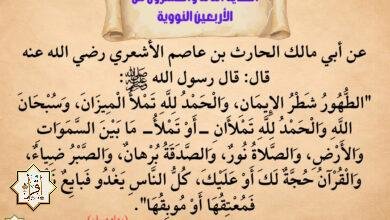 الحديث الثالث والعشرون من
الأربعين النووية
عن أبي مالك الحارث بن عاصم الأشعري رضي الله عنه
قال: قال رسول الله ﷺ:
"الطُّهُورُ شَطْرُ الإِيمَانِ، وَالْحَمْدُ لِلَّهِ تَمْلَأُ الْمِيزَانَ، وَسُبْحَانَ
اللَّهِ وَالْحَمْدُ لِلَّهِ تَمْلَآَانِ ــ أَوْ تَمْلَأُ ــ مَا بَيْنَ السَّمَوَاتِ
وَالأَرْضِ، وَالصَّلَاةُ نُورٌ، وَالصَّدَقَةُ بُرْهَانٌ، وَالصَّبْرُ ضِيَاءٌ،
وَالْقُرْآنُ حُجَّةٌ لَكَ أَوْ عَلَيْكَ، كُلُّ النَّاسِ يَغْدُو فَبَايِعٌ نَفْسَهُ
فَمُعْتِقُهَا أَوْ مُوبِقُهَا".
اقرأ